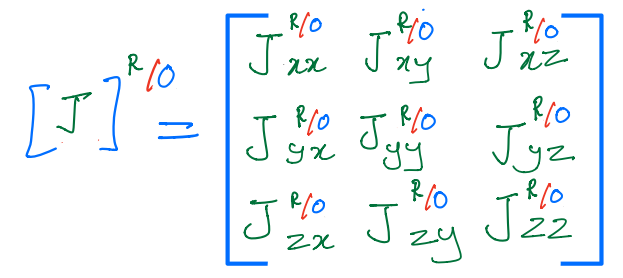 [J]^{R/O} = [J_{xx}^{R/O} J_{xy}^{R/O} J_{xz}^{R/O}
J_{yx}^{R/O} J_{yy}^{R/O} J_{yz}^{R/O}
J_{zx}^{R/O} J_{zy}^{R/O} J_{zz}^{R/O}]